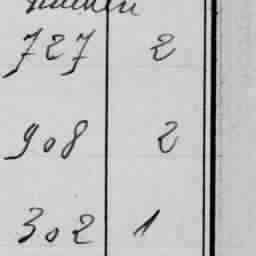 727 2
908 2
302 1